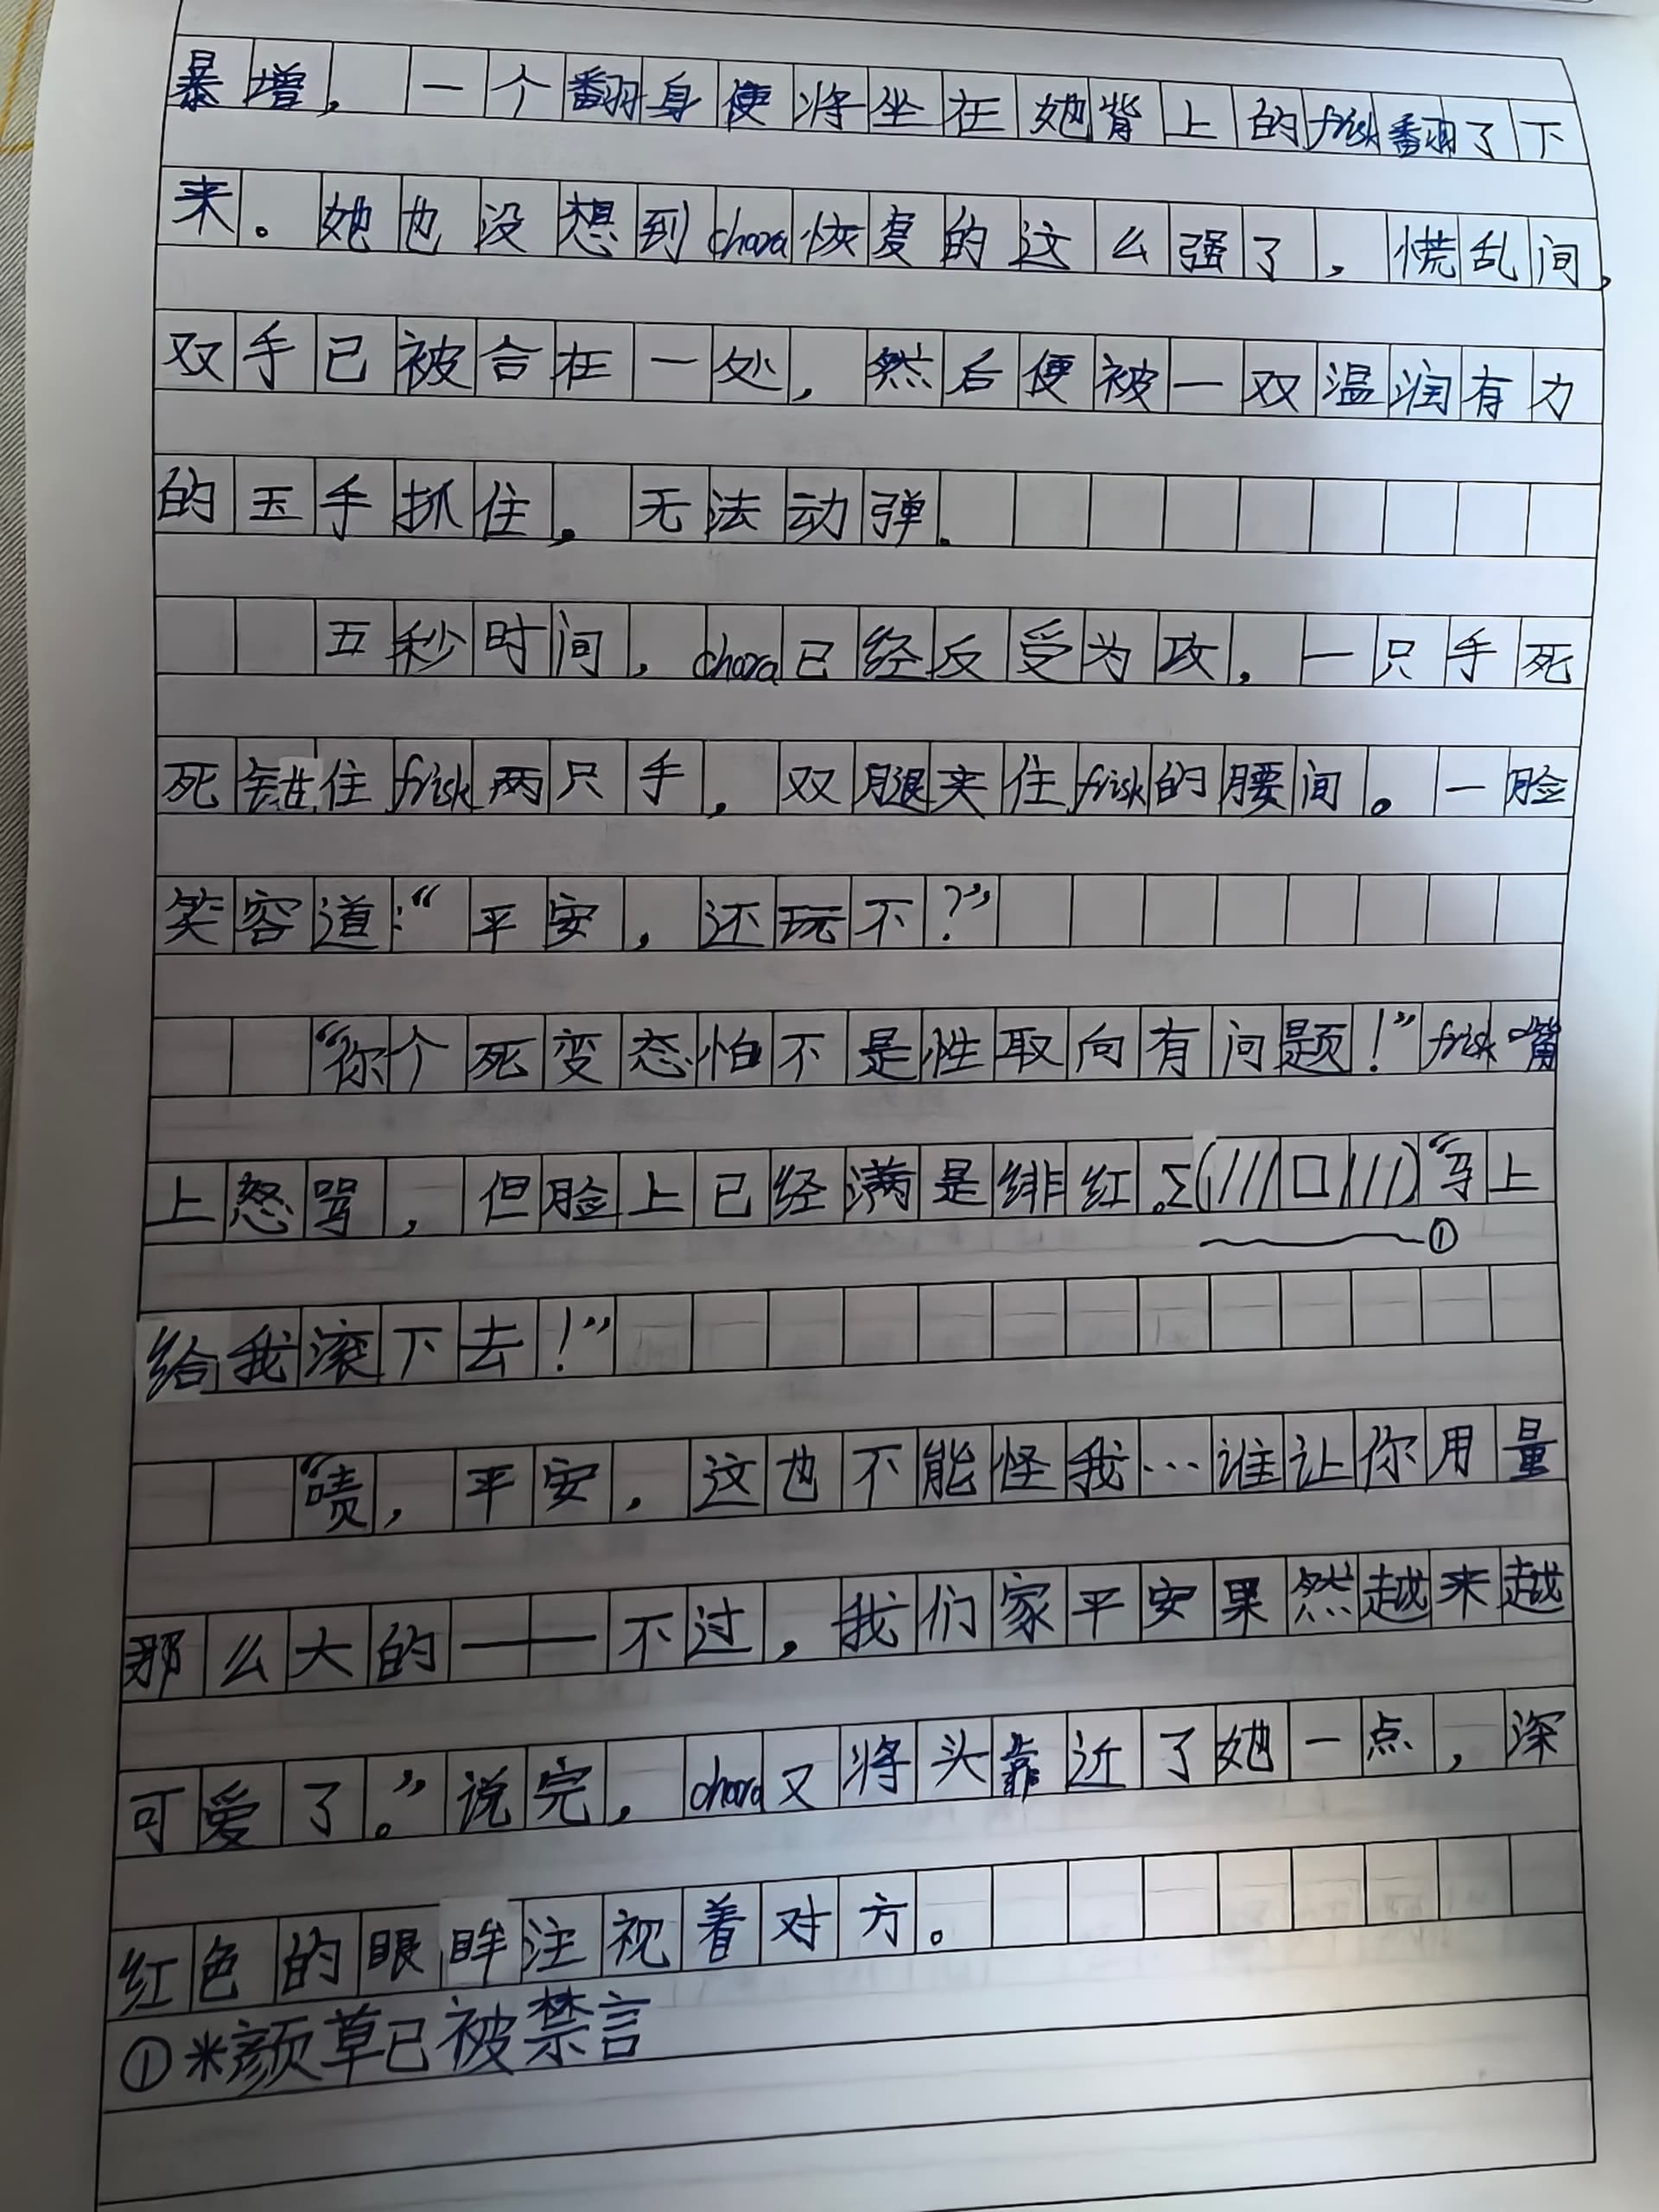 暴增，一个翻身便将坐在她背上的frisk翻了下
来。她也没想到chara恢复的这么强了，慌乱间，
双手已被合在一处，然后便被一双温润有力
的玉手抓住，无法动弹。
五秒时间，chara已经反受为攻，一只手死
死钳住frisk两只手，双腿夹住frisk的腰间。一脸
笑容道：“平安，还玩不？”
“你个死变态怕不是性取向有问题！”frisk嘴
上怒骂，但脸上已经满是绯红。Σ(///口///)“马上
①
给我滚下去！”
“啧，平安，这也不能怪我…谁让你用量
那么大的——不过，我们家平安果然越来越
可爱了。”说完，chara又将头靠近了她一点，深
红色的眼眸注视着对方。
①※颜草已被禁言